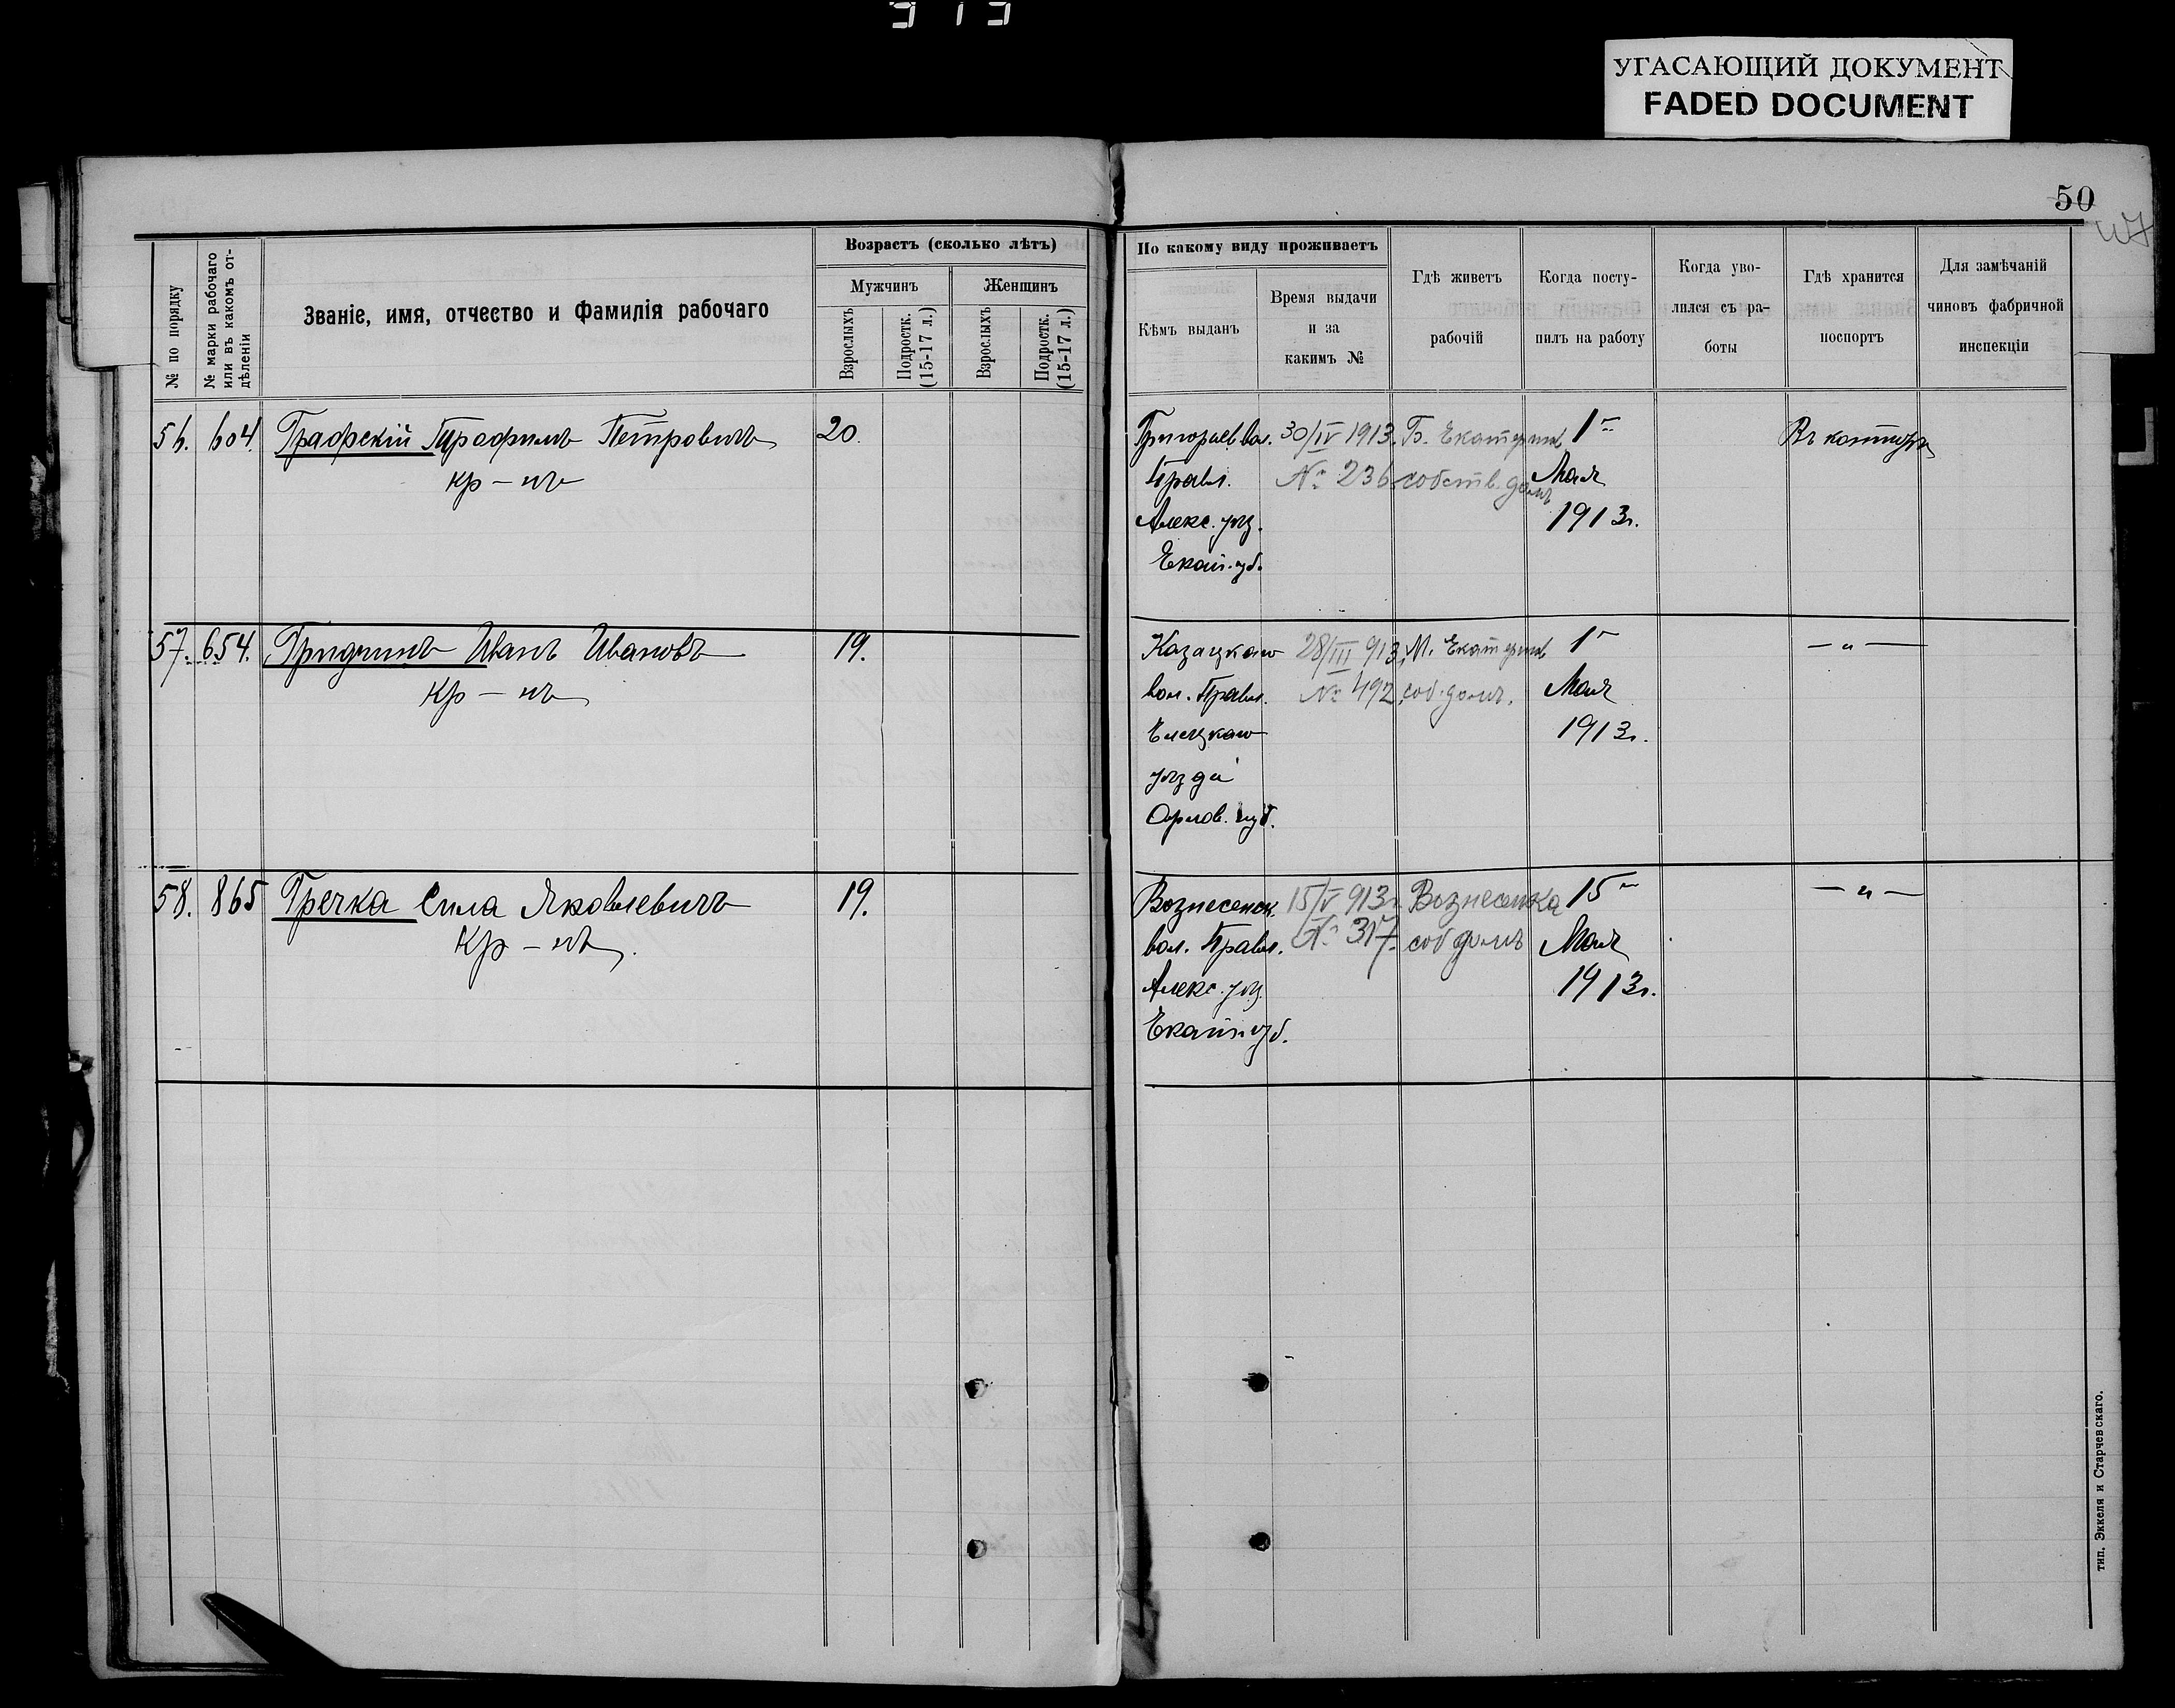 УГАСАЮЩИЙ ДОКУМЕНТ
FADED DOCUMENT
50
№ по порядку
№ марки рабочаго
или въ какомъ от-
дѣленіи
Званіе, имя, отчество и фамилія рабочаго
Возрастъ (сколько лѣтъ)
Мужчинъ
Женщинъ
Взрослыхъ
Подростк.
(15-17 л.)
Взрослыхъ
Подростк.
(15-17 л.)
По какому виду проживаетъ
Кѣмъ выданъ
Время выдачи
и за
какимъ №
Гдѣ живетъ
рабочій
Когда посту-
пилъ на работу
Когда уво-
лился съ ра-
боты
Гдѣ хранится
поспортъ
Для замѣчаній
чиновъ фабричной
инспекціи
56. 604. Графскій Трофимъ Петровичъ 20.
кр-нъ
Григорьев. вол. 30/IV 1913. Б. Екатерин. 1го Въ конторѣ
Правл. № 236. собств. домъ Мая
Алекс. уѣз. 1913г.
Екат. губ.
57. 654. Гридчинъ Иванъ Ивановъ 19.
Кр-нъ
Казацкаго 28/III 913. М. Екатерин. 1го - " -
вол. Правл. № 492. соб. домъ. Мая
Елецкаго 1913г.
уѣзда
Орлов. губ.
58. 865 Гречка Сила Яковлевичъ 19.
Кр-нъ.
Вознесенск. 15/V 913г. Вознесенка 15го - " -
вол. Правл. № 317. соб домъ Мая
Алекс. уѣз. 1913г.
Екат. губ.
тип. Эккеля и Старчевскаго.